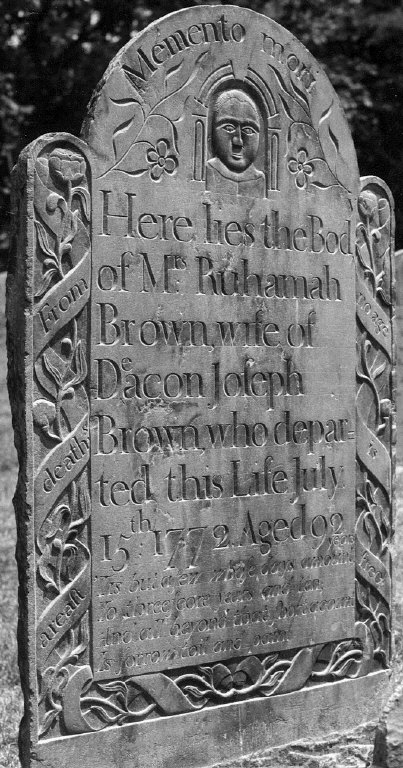 Memento mori
Here lies the Bod
of Mrs Ruhamah
Brown, wife of
Deacon Joſeph
Brown, who depar=
ted this Life July
15th 1772. Aged 92
years
Tis but a few whose days amount
To three score years and ten
And all beyond that short account
Is sorrow toil and pain
From
death
arrest
no age
is
free